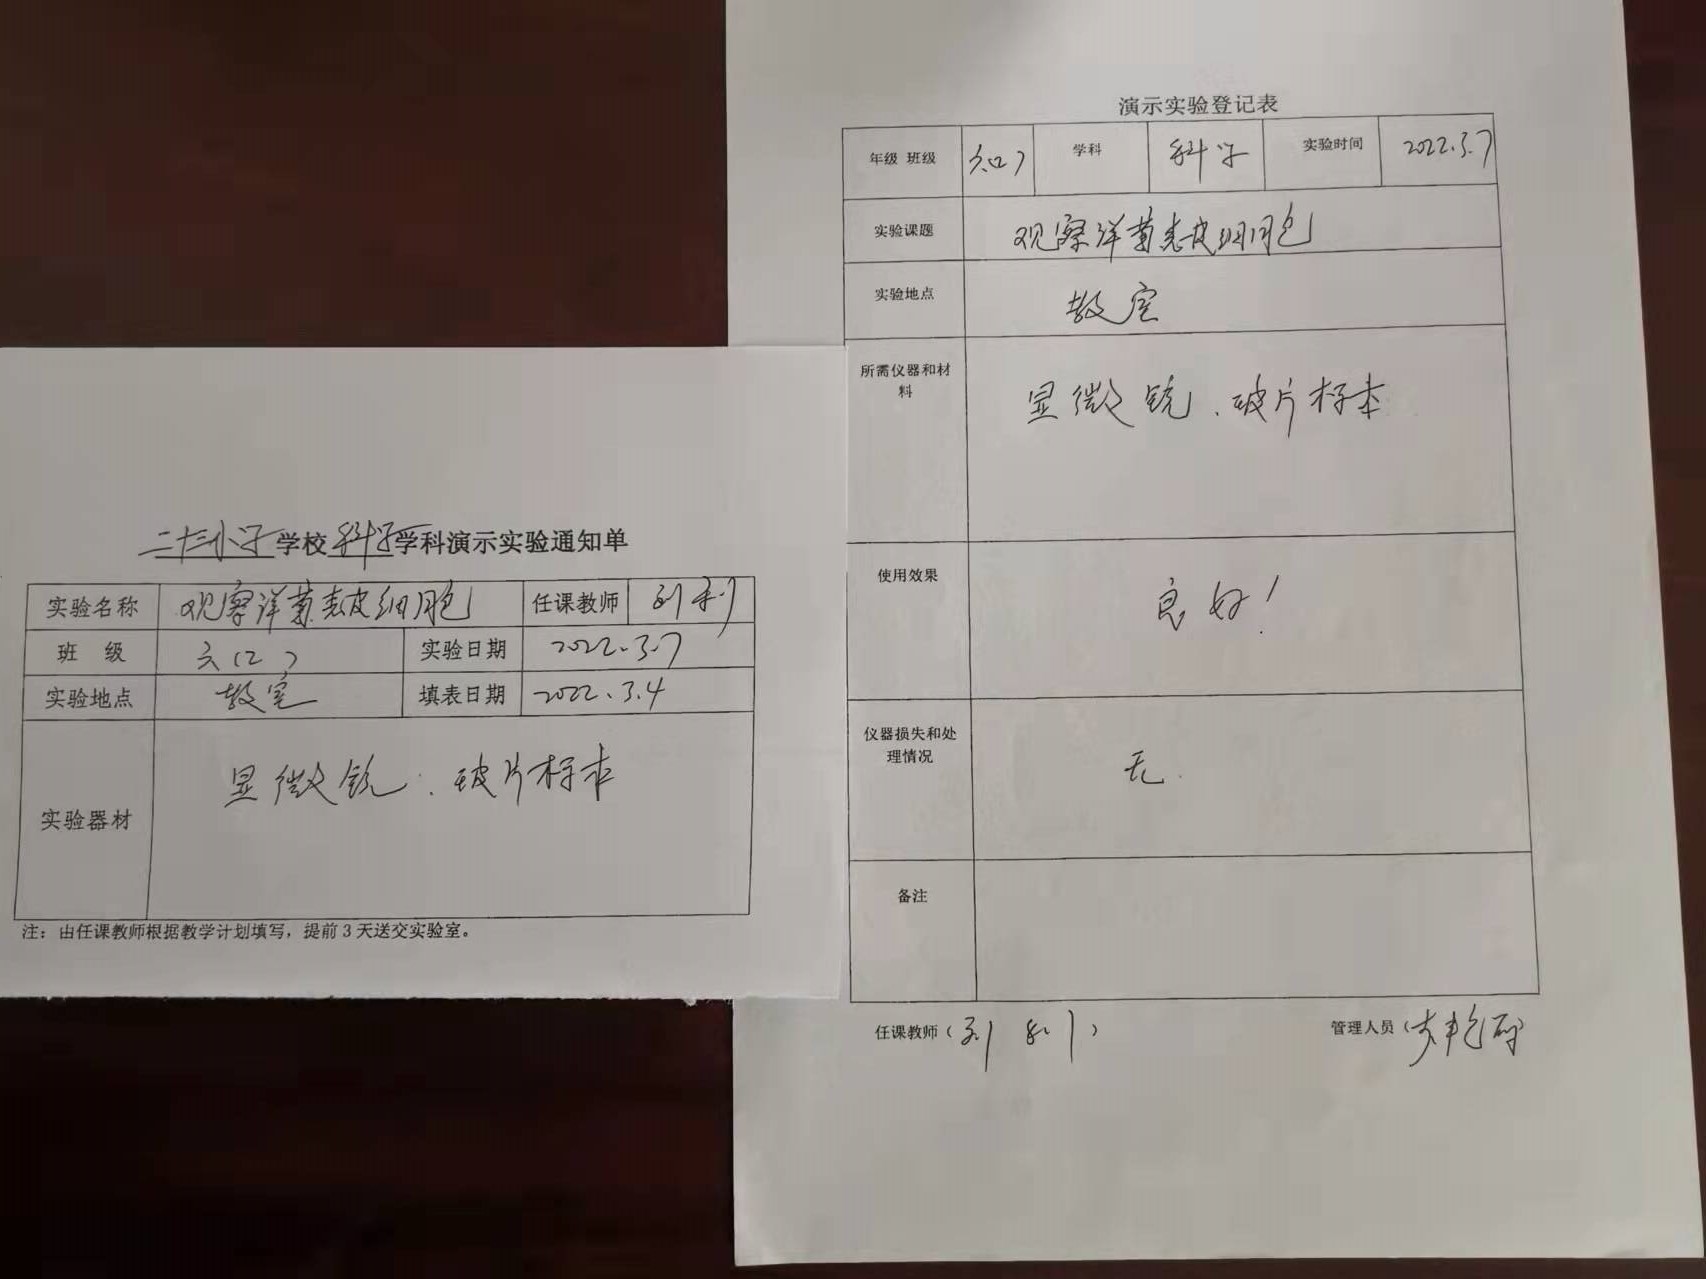 二十三小学学校科学学科演示实验通知单
实验名称 观察洋葱表皮细胞 任课教师 刘利
班 级 六(2) 实验日期 2022.3.7
实验地点 教室 填表日期 2022.3.4
实验器材 显微镜、玻片标本
注：由任课教师根据教学计划填写，提前3天送交实验室。
演示实验登记表
年级 班级 六(2) 学科 科学 实验时间 2022.3.7
实验课题 观察洋葱表皮细胞
实验地点 教室
所需仪器和材
料
显微镜、玻片标本
使用效果 良好！
仪器损失和处
理情况
无.
备注
任课教师（刘利） 管理人员（